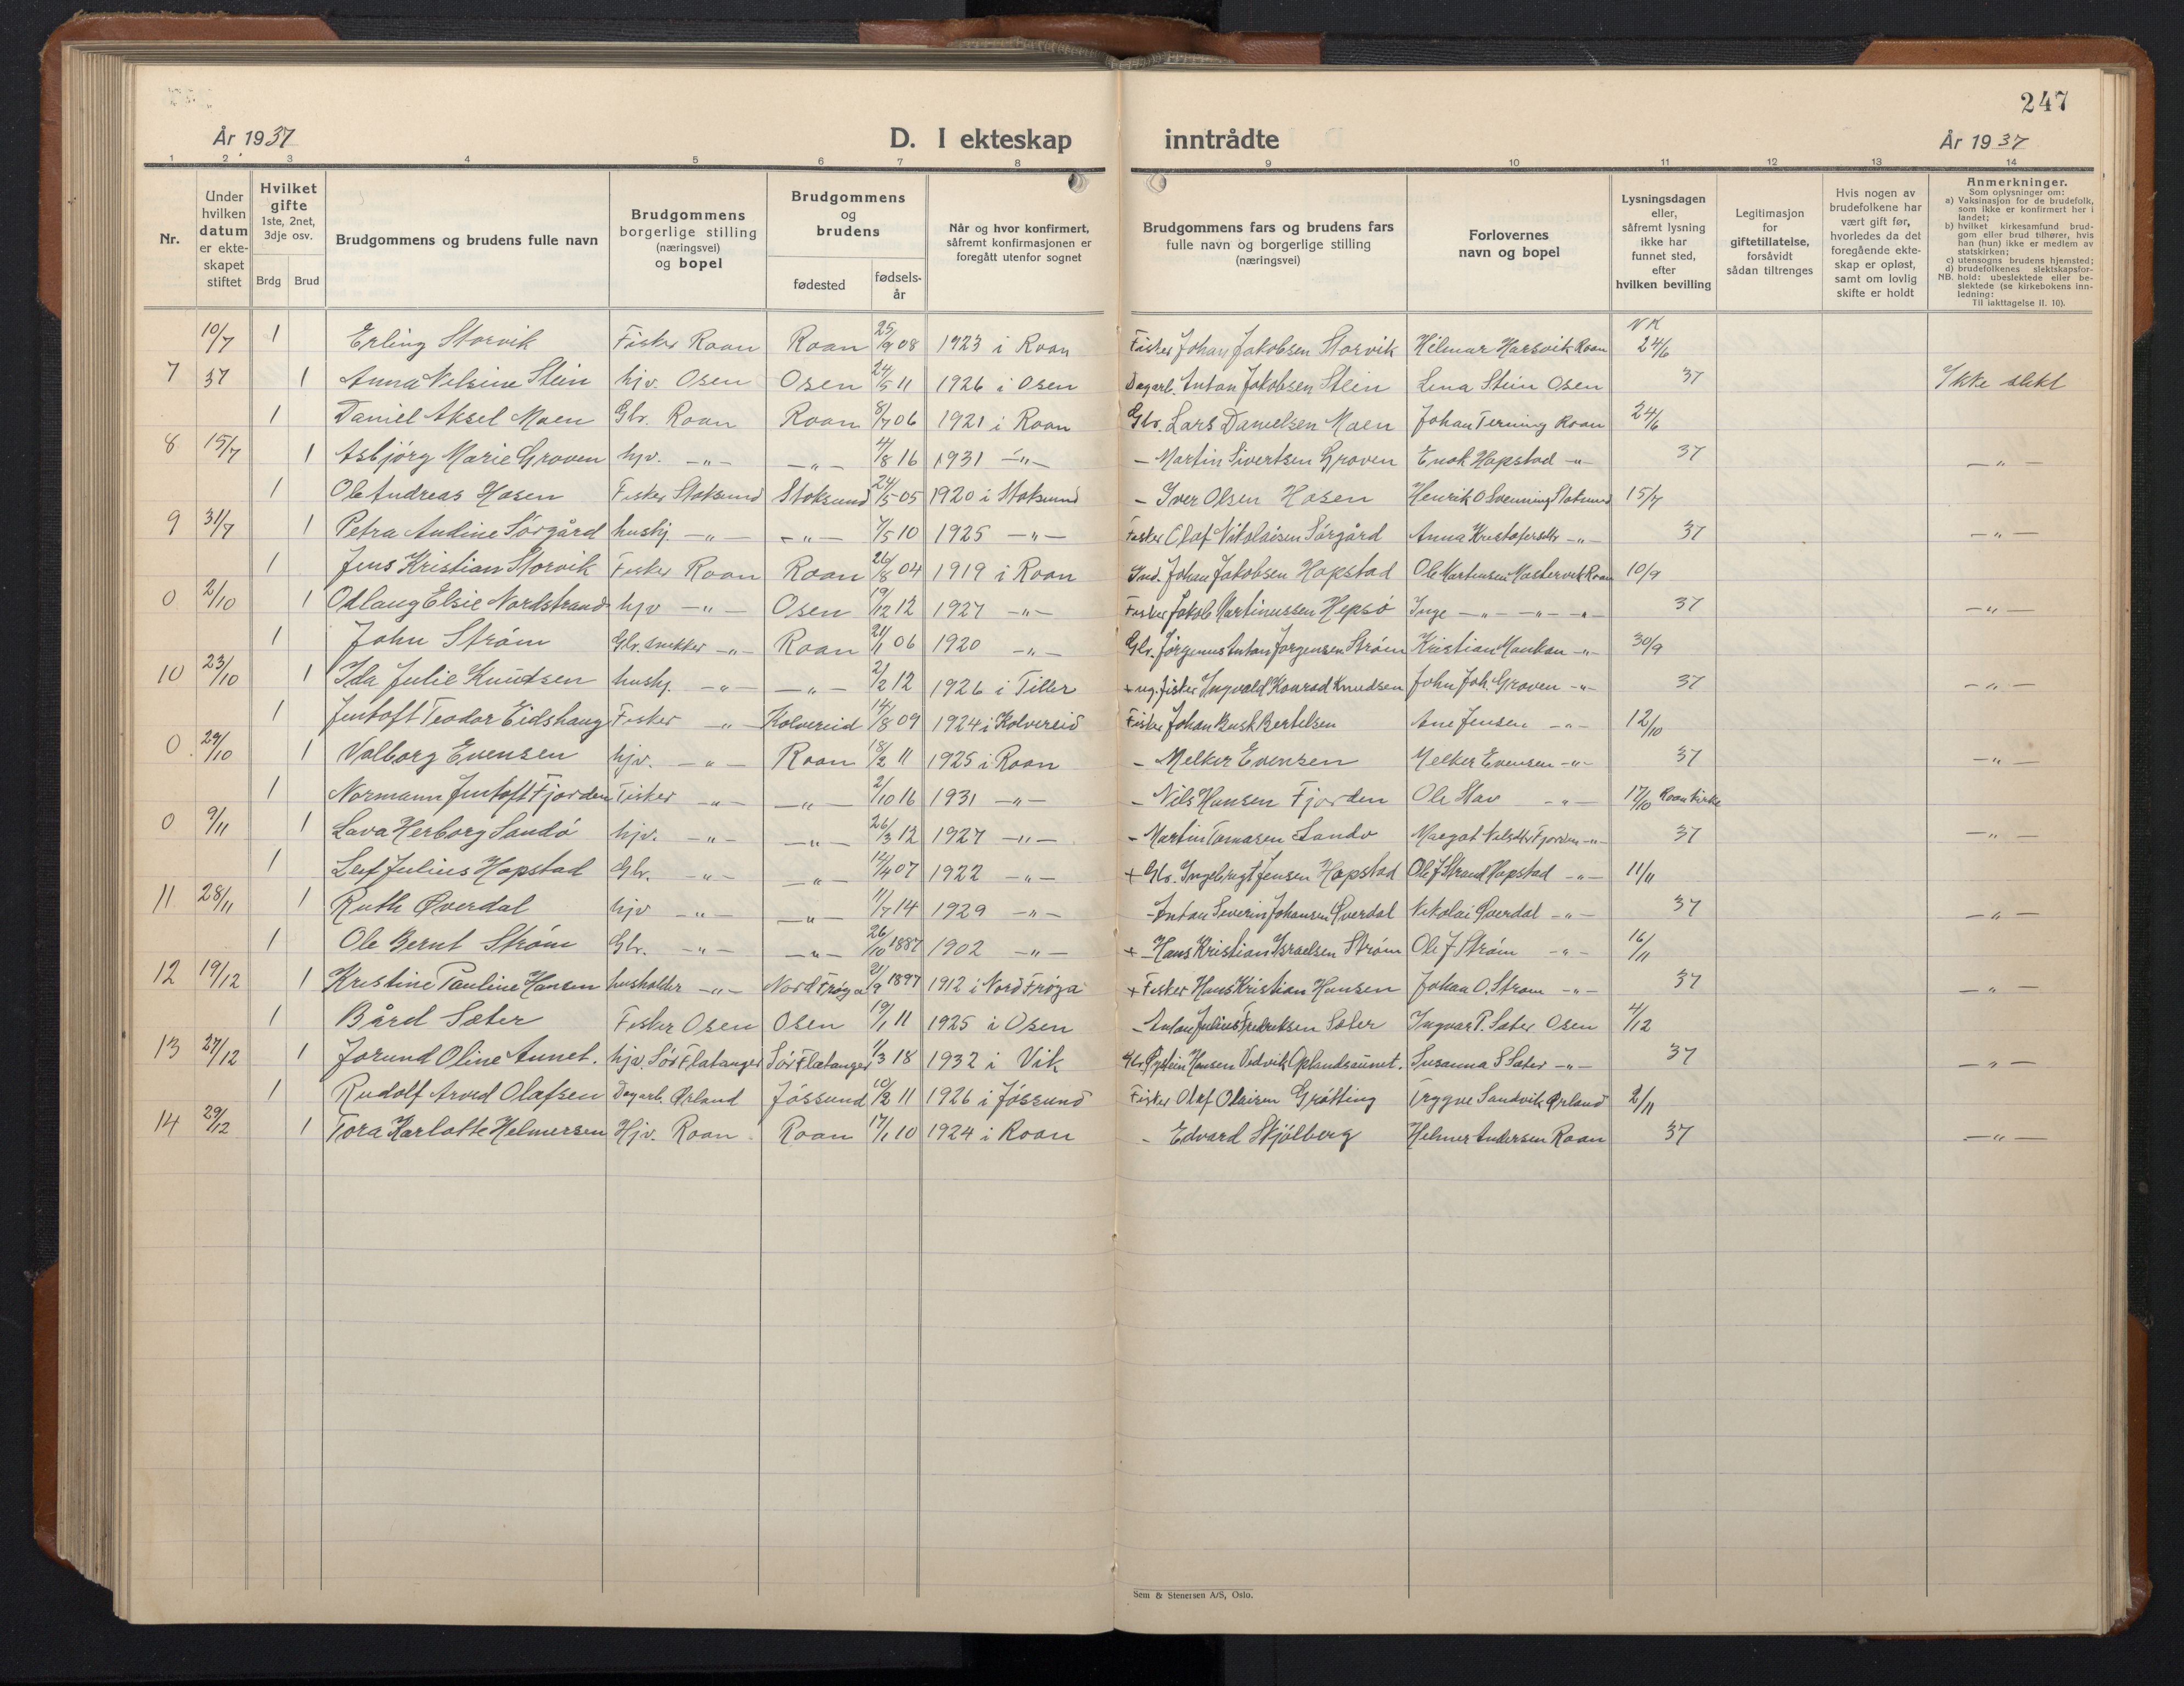 247
År 1937 D. I ekteskap inntrådte År 1937
1 2 3 4 5 6 7 8 9 10 11 12 13 14
Nr.
Under hvilken datum er ekteskapet stiftet
Hvilket gifte 1ste, 2net, 3dje osv.
Brdg Brud
Brudgommens og brudens fulle navn
Brudgommens borgerlige stilling (næringsvei) og bopel
Brudgommens og brudens
fødested fødsels-år
Når og hvor konfirmert, såfremt konfirmasjonen er foregått utenfor sognet
Brudgommens fars og brudens fars fulle navn og borgerlige stilling (næringsvei)
Forlovernes navn og bopel
Lysningsdagen eller, såfremt lysning ikke har funnet sted, efter hvilken bevilling
Legitimasjon for giftetillatelse, forsåvidt sådan tiltrenges
Hvis nogen av brudefolkene har vært gift før, hvorledes da det foregående ekteskap er opløst, samt om lovlig skifte er holdt
Anmerkninger.
Som oplysninger om:
a) Vaksinasjon for de brudefolk, som ikke er konfirmert her i landet;
b) hvilket kirkesamfund brudgom eller brud tilhører, hvis han (hun) ikke er medlem av statskirken;
c) utensogns brudens hjemsted;
d) brudefolkenes slektskapsforhold: ubeslektede eller beslektede (se kirkebokens innledning:
NB. Til iakttagelse II. 10).
10/7 1 Erling Storvik Fisker Roan Roan 25/9 08 1923 i Roan Fisker Johan Jakobsen Storvik Hilmar Harsvik Roan 24/6
7 37 1 Anna Nelsine Stein hjv. Osen Osen 24/5 11 1926 i Osen Dagarb. Anton Jakobsen Stein Lina Stein Osen 37 Ikke slekt
1 Daniel Aksel Moen Gbr. Roan Roan 8/7 06 1921 i Roan Gbr. Lars Danielsen Moen Johan Terning Roan 24/6
8 15/7 1 Asbjørg Marie Groven hjv. -"- -"- 4/8 16 1931 -"- - Martin Sivertsen Groven Enok Hopstad -"- 37 -"-
1 Ole Andreas Hosen Fisker Stoksund Stoksund 24/5 05 1920 i Stoksund - Iver Olsen Hosen Henrik O Svenning Stoksund 15/7
9 31/7 1 Petra Andine Sørgård hushj. -"- -"- 7/5 10 1925 -"- Fisker Olaf Nikolaisen Sørgård Anna Kristofersdtr -"- 37 -"-
1 Jens Kristian Storvik Fisker Roan Roan 26/8 04 1919 i Roan Ind. Johan Jakobsen Hopstad Ole Martinsen Mastervik Roan 10/9
0 2/10 1 Odlaug Elsie Nordstrand hjv -"- Osen 19/12 12 1927 -"- Fisker Jakob Martinussen Hepsø Inge -"- -"- -"- 37 -"-
1 John Strøm Gbr. snekker -"- Roan 21/11 06 1920 -"- Gbr. Jørginus Anton Jørgensen Strøm Kristian Mankan -"- 30/9
10 23/10 1 Ida Julie Knudsen hushj. -"- -"- 2/2 12 1926 i Tiller + ug. fisker Ingvald Konrad Knudsen John Joh. Groven -"- 37 -"-
1 Jentoft Teodor Eidshaug Fisker -"- Kolvereid 14/8 09 1924 i Kolvereid Fisker Johan Busk Bertelsen Ane Jensen -"- 12/10
0 29/10 1 Valborg Evensen hjv. -"- Roan 18/2 11 1925 i Roan - Melker Evensen Melker Evensen -"- 37 -"-
1 Normann Jentoft Fjorden Fisker -"- -"- 2/10 16 1931 -"- - Nils Hansen Fjorden Ole Stav -"- 17/10 Roan kirke
0 9/11 1 Lava Herborg Sandø hjv. -"- -"- 26/3 12 1927 -"- - Martin Tomasen Sandø Margot Nilsdtr Fjorden -"- 37 -"-
1 Leif Julius Hopstad Gbr. -"- -"- 12/4 07 1922 -"- + Gbr. Ingebrigt Jensen Hopstad Ole J Strand Hopstad -"- 11/11
11 28/11 1 Ruth Øverdal hjv -"- -"- 11/7 14 1929 -"- - Anton Severin Johansen Øverdal Nikolai Øverdal -"- 37 -"-
1 Ole Bernt Strøm Gbr. -"- -"- 26/10 1887 1902 -"- + - Hans Kristian Israelsen Strøm Ole J Strøm -"- 16/11
12 19/12 1 Kristine Pauline Hansen husholder -"- Nord Frøya 21/9 1897 1912 i Nord Frøya + Fisker Hans Kristian Hansen Johan O. Strøm -"- 37 -"-
1 Bård Sæter Fisker Osen Osen 19/1 11 1925 i Osen - Anton Julius Fredriksen Sæter Ingvar P. Sæter Osen 4/12
13 27/12 1 Jorund Oline Aunet. hjv. Sør Flatanger Sør Flatanger 1/3 18 1932 i Vik Gbr. Øystein Hansen Vedvik Oplandsaunet. Susanna S Sæter -"- 37 -"-
1 Rudolf Arvid Olafsen Dagarb. Ørland Jøssund 10/2 11 1926 i Jøssund Fisker Olaf Olaisen Grøtting Trygve Sandvik Ørland 2/11
14 29/12 1 Tora Karlotte Helmersen Hjv. Roan Roan 17/1 10 1924 i Roan - Edvard Skjølberg Helmer Andersen Roan 37 -"-
Sem & Stenersen A/S, Oslo.